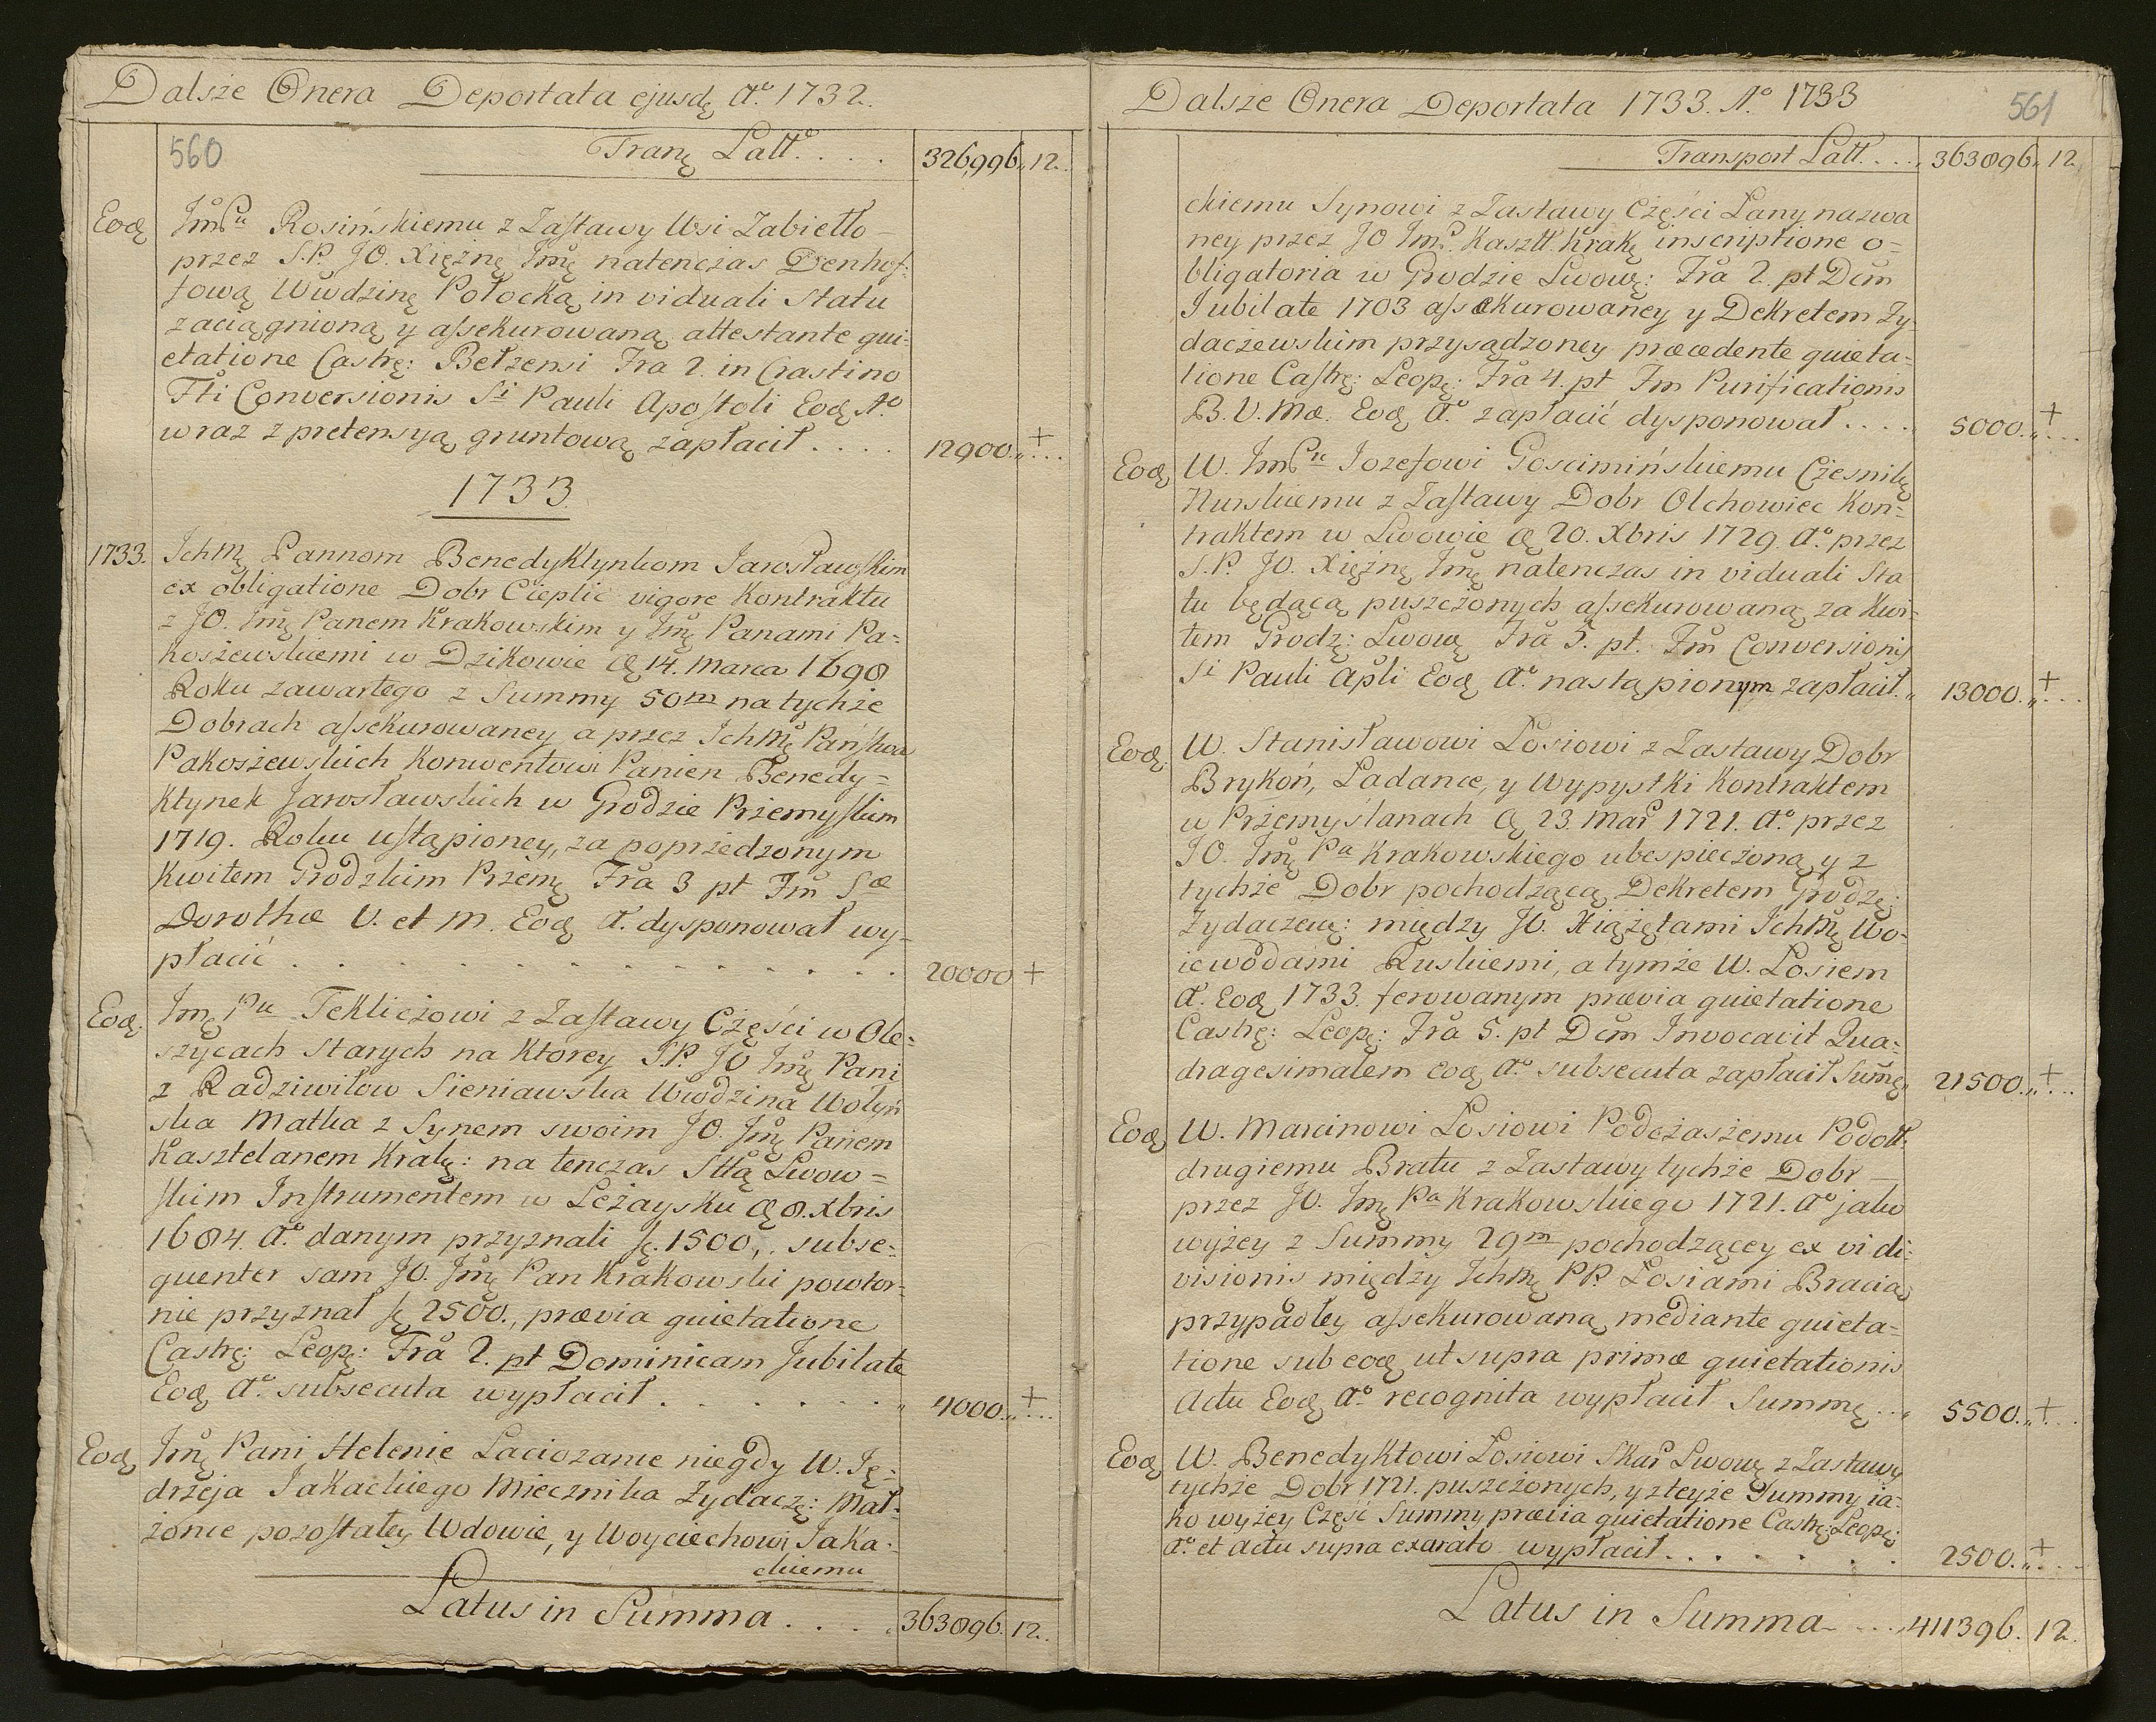 Dalsze Onera Deportata ejusdę A.° 1732.
560
Tranę Latt. . . . 326,996,, 12..
Eodę ImP͠u Rosińskiemu z Zastawy Wsi Zabiełło
przez S.P. JO. Xiężnę Jmę natenczas Denhof:
fową Wwdzinę Połocką in viduali Statu
zaciągnioną y assekurowaną attestante qui:
etatione Castrę: Bełzensi Fra 2. in Crastino
Fti Conversionis Si Pauli Apostoli Eodę A.°
wraz z pretensyą gruntową zapłacił . . . . 12900.,,+...
1733.
1733. Ichmę Pannom Benedyktynkom Jarosławskim
ex obligatione Dobr Cieplic vigore Kontraktu
z JO. Jmę Panem Krakowskim y Jmę Panami Pa=
koszewskiemi w Dzikowie dę 14. Marca 1698
Roku zawartego z Summy 50m na tychże
Dobrach assekurowaney a przez Ichmę Państwa
Pakoszewskich Konwentowi Panien Benedy=
ktynek Jarosławskich w Grodzie Przemyskim
1719. Roku ustąpioney, za poprzedzonym
Kwitem Grodzkim Przemę Fra 3 pt Fm Sæ
Dorothæ V. et M. Eodę A. dysponował wy-
płacić . . . . . . . . . . . . . 20000 +
Eodę. Jmę Pu Tekliczowi z Zastawy Części w Ole:
szycach Starych na ktorey S.P. JO Jmę Pani
z Radziwiłow Sieniawska Wwodzina Wołyń
ska Matka z Synem swoim JO. Jmę Panem
Kasztelanem Krakę: na tenczas Sttą Lwow=
skim Instrumentem w Leżaysku dę 8. Xbris
1684. A.° danym przyznali fę. 1500,. subse:
quenter sam JO. Jmę Pan Krakowski powtor:
nie przyznał fę 2500., prævia quietatione
Castrę: Leopę: Fra 2. pt Dominicam Jubilate
Eodę A.° subsecuta wypłacił . . . . . . . ,, 4000.,,+...
Eodę Jmę Pani Helenie Laciozance niegdy W. Ję=
drzeja Jakackiego Miecznika Zydaczę: Mał:
żonce pozostałey Wdowie, y Woyciechowi Jaka:
ckiemu
Latus in Summa . . . . 363896. 12..
Dalsze Onera Deportata 1733. A.° 1733
561
Transport Latt. . . . 363896,, 12
ckiemu Synowi z Zastawy Części Lany nazwa
ney przez JO Jmę. Kasztt. Krakę inscriptione o=
bligatoria w Grodzie Lwowę: Fra 2. pt Dcm
Jubilate 1703 assekurowaney y Dekretem Zy:
daczewskim przysądzoney præcedente quieta=
tione Castrę: Leopę: Fra 4. pt Fm Purificationis
B. V. Mæ. Eodę A.° zapłacić dysponował . . . . 5000.,,+...
Eodę W. ImPu Jozefowi Goscimińskiemu Cześnikę
Nurskiemu z Zastawy Dobr Olchowiec Kon=
traktem w Lwowie dę 20. Xbris 1729. A.° przez
S.P. JO. Xiężnę Jmę natenczas in viduali Sta
tu będącą puszczonych assekurowaną za Kwi=
tem Grodz: Lwowę Fra 5. pt. Fm Conversionis
Si Pauli Apli Eodę A.° nastąpionym zapłacił.,, 13000.,,+...
Eodę. W. Stanisławowi Łosiowi z Zastawy Dobr
Brykoń, Ladance, y Wypystki Kontraktem
w Przemyślanach dę 23. Mar 1721. A.° przez
JO. Jmę Pa Krakowskiego ubespieczoną y z
tychże Dobr pochodzącą Dekretem Grodzę:
Zydaczewę: między JO. Xiążętami Ichmę Wo-
iewodami Ruskiemi, a tymże W. Łosiem
A. Eodę 1733. ferowanym prævia quietatione
Castrę: Leopę: Fra 5. pt Dcm Invocavit Qua=
dragesimalem Eodę A.° subsecuta zapłacił Sumę,, 21500.,,+...
Eodę W. Marcinowi Łosiowi Podczaszemu Podolł.
drugiemu Bratu z Zastawy tychże Dobr
przez JO. Jmę Pa Krakowskiego 1721. A.° jako
wyżey z Summy 29m pochodzącey ex vi di:
visionis między Ichmę PP. Łosiami Bracią
przypadłey assekurowaną, mediante quieta=
tione sub eodę ut supra primæ quietationis
Actu Eodę A.° recognita wypłacił Summę . . ,, 5500.,,+...
Eodę W. Benedyktowi Łosiowi Skar Lwowę z Zastawy
tychże Dobr 1721. puszczonych, y zteyże Summy ia=
ko wyżey Część Summy prævia quietatione Castrę: Leopę:
A.° et Actu supra exarato wypłacił . . . . . . . 2500.,,+...
Latus in Summa . . . . 411396. 12.